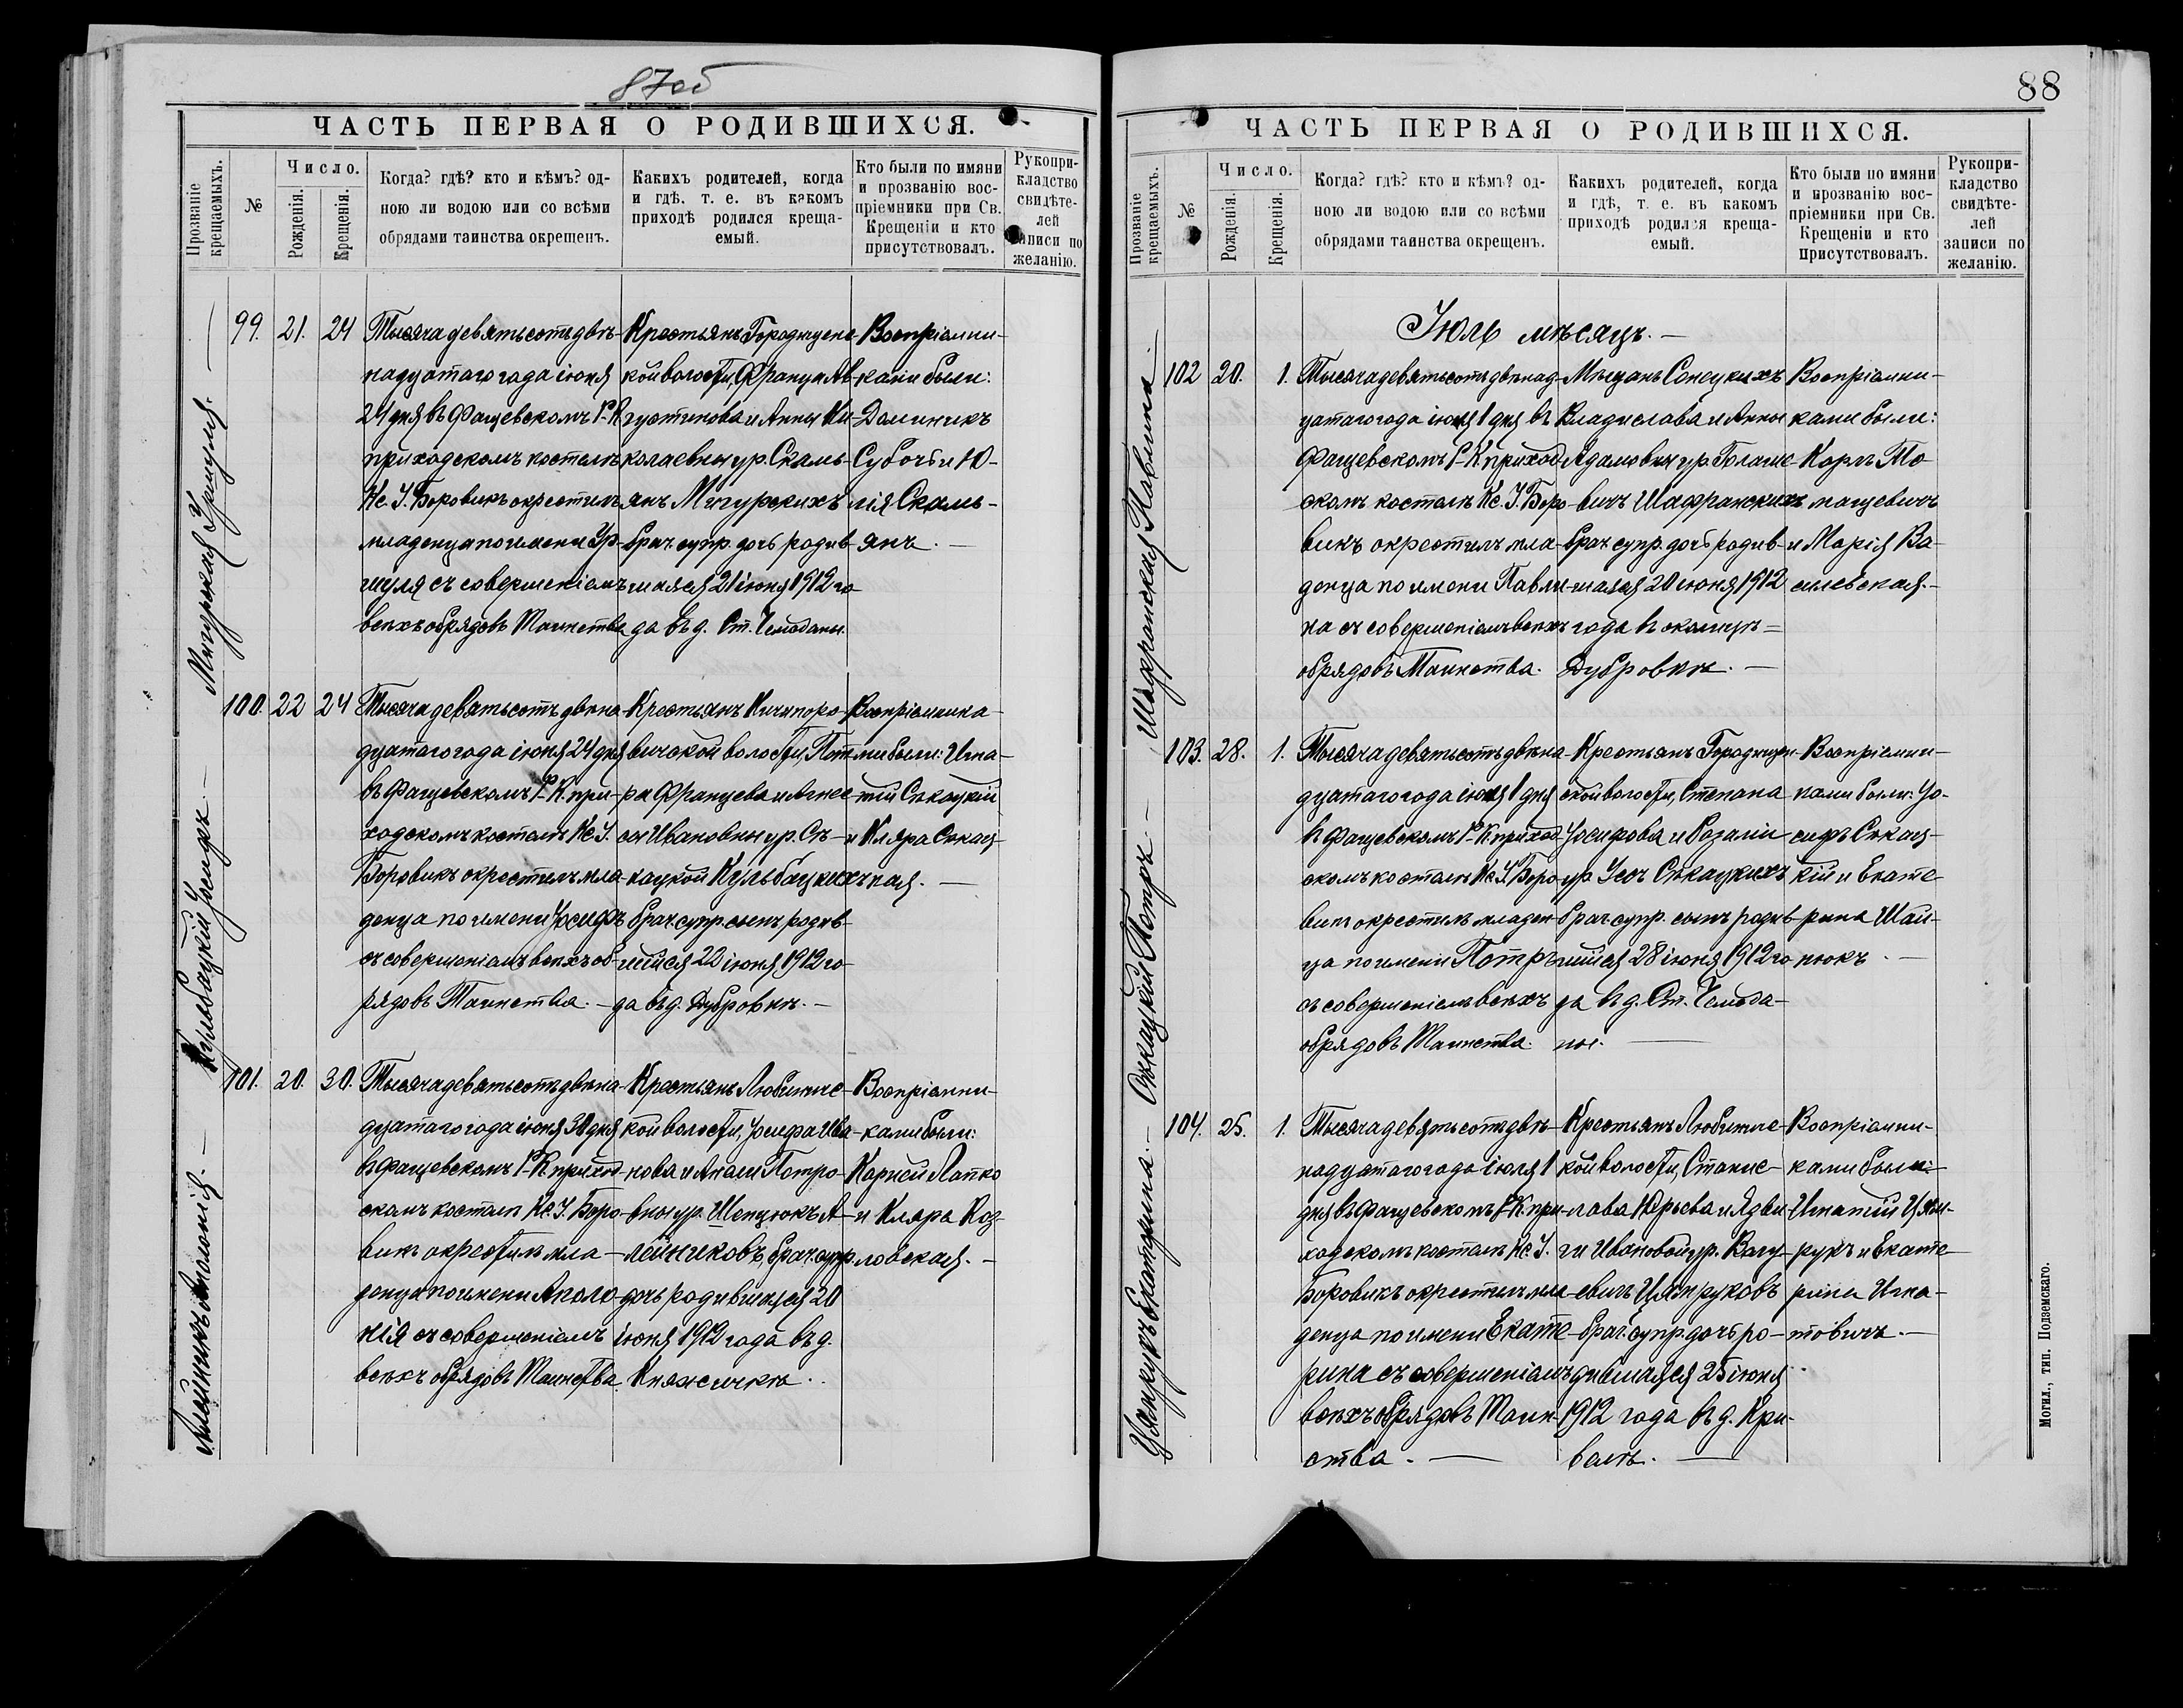 87об
ЧАСТЬ ПЕРВАЯ О РОДИВШИХСЯ.
Прозваніе крещаемыхъ.
№
Число.
Рожденія.
Крещенія.
Когда? гдѣ? кто и кѣмъ? од-
ною ли водою или со всѣми
обрядами таинства окрещенъ.
Какихъ родителей, когда
и гдѣ. т. е. въ какомъ
приходѣ родился креща-
емый.
Кто были по имяни
и прозванію вос-
пріемники при Св.
Крещеніи и кто
присутствовалъ.
Рукопри-
кладство
свидѣте-
лей
записи по
желанію.
Мигурская Уршуля.
99. 21. 24
Тысяча девятьсотъ двѣ-
надцатаго года іюня
24 дня въ Фащевскомъ Р.-К
приходскомъ костелѣ
Кс. І. Боровикъ окрестилъ
младенца по имени Ур-
шуля съ совершеніемъ
всѣхъ обрядовъ Таинства
Крестьянъ Городищенс-
кой волости, Франца Ав-
густинова и Анны Ни-
колаевны ур. Скаль-
янъ Мигурскихъ
брач. супр. дочь родив-
шаяся 21 іюня 1912 го
да въ д. Ст. Чемоданы.
Воспріемни-
ками были:
Доминикъ
Субочъ и Ю-
лія Скаль-
янъ.
Кульбацкій Іосифъ
100. 22 24
Тысяча девятьсотъ двѣна-
дцатаго года іюня 24 дня
въ Фащевскомъ Р-К. при-
ходскомъ костелѣ Кс. І.
Боровикъ окрестилъ мла-
денца по имени Іосифъ
съ совершеніемъ всѣхъ об-
рядовъ Таинства.
Крестьянъ Ничипоро-
вичской волости, Пет-
ра Францева и Агнес-
сы Ивановны ур. Съ-
кацкой Кульбацкихъ
брач. супр. сынъ родив-
шійся 22 іюня 1912 го
да въ д. Дубровкѣ.
Воспріемника-
ми были: Игна-
тій Съкацкій
и Кляра Съкац-
кая.
Алейникъ Аполонія.
101. 20. 30.
Тысяча девятьсотъ двѣна-
дцатаго года іюня 30 дня
въ Фащевскомъ Р-К. приход-
скомъ костелѣ Кс. І. Боро-
викъ окрестилъ мла-
денца по имени Аполо-
нія съ совершеніемъ
всѣхъ обрядовъ Таинства.
Крестьянъ Любинис-
кой волости, Іосифа Ива-
нова и Амаліи Петро-
вны ур. Шепцюкъ А-
лейниковъ, брач. супр.
дочь родившаяся 20
іюня 1912 года въ д.
Княжичкѣ.
Воспріемни-
ками были:
Карней Лапко
и Кляра Коз-
ловская.
88
ЧАСТЬ ПЕРВАЯ О РОДИВШИХСЯ.
Прозваніе крещаемыхъ.
№
Число.
Рожденія.
Крещенія.
Когда? гдѣ? кто и кѣмъ? од-
ною ли водою или со всѣми
обрядами таинства окрещенъ.
Какихъ родителей, когда
и гдѣ, т. е. въ какомъ
приходѣ родился креща-
емый.
Кто были по имяни
и прозванію вос-
пріемники при Св.
Крещеніи и кто
присутствовалъ.
Рукопри-
кладство
свидѣте-
лей
записи по
желанію.
Іюль мѣсяцъ.
Шафранская Павлина
102 20. 1.
Тысяча девятьсотъ двѣнад-
цатаго года іюля 1 дня въ
Фащевскомъ Р-К приход-
скомъ костелѣ Кс. І. Боро-
викъ окрестилъ мла-
денца по имени Павли-
на съ совершеніемъ всѣхъ
обрядовъ Таинства.
Мѣщанъ
Владислава и Анны
Адамовны ур.
вичъ Шафранскихъ
брач супр. дочь родив-
шаяся 20 іюня 1912
года въ околицѣ
Дубровкѣ.
Воспріемни-
ками были:
Карлъ То-
мащевичъ
и Марія Ва-
силевская.
Съкацкій Петръ
103. 28. 1.
Тысяча девятьсотъ двѣна-
дцатаго года іюля 1 дня
въ Фащевскомъ Р-К. приход-
скомъ костелѣ Кс. І. Боро-
викъ окрестилъ младен-
ца по имени Петръ
съ совершеніемъ всѣхъ
обрядовъ Таинства.
Крестьянъ Городищен-
ской волости, Степана
Іосифова и Розаліи
ур. Съкацкихъ
брач. супр. сынъ родив-
шійся 28 іюня 1912 го
да въ д. Ст. Чемода-
ны.
Воспріемни-
ками были: Іо-
сифъ Съкац-
кій и Екате-
рина Шай-
нюкъ.
Цимрукъ Екатерина
104. 25. 1.
Тысяча девятьсотъ двѣ-
надцатаго года іюля 1
дня въ Фащевскомъ Р-К при-
ходскомъ костелѣ Кс. І.
Боровикъ окрестилъ мла-
денца по имени Екате-
рина съ совершеніемъ
всѣхъ обрядовъ Таин-
ства.
Крестьянъ Любинис-
кой волости, Станис-
лава Юрьева и Ядви-
ги Ивановой ур. Вагу-
евичъ Цимруковъ
брач. супр. дочь ро-
дившаяся 25 іюня
1912 года въ д. Кри-
велѣ.
Воспріемни-
ками были:
Игнатій Цим-
рукъ и Екате-
рина Игна-
товичъ.
Могил., тип. Подземскаго.